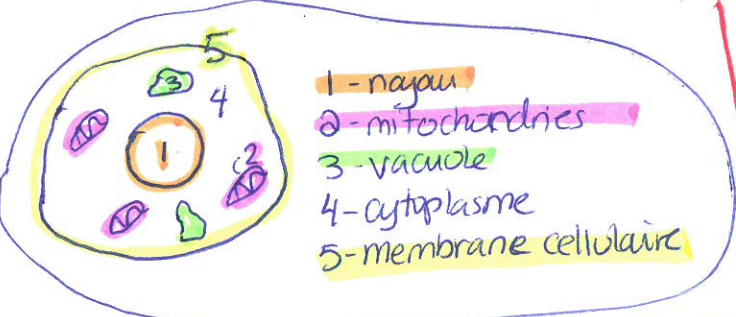 5
3
4
1
2
1-noyau
2-mitochondries
3-vacuole
4-cytoplasme
5-membrane cellulaire